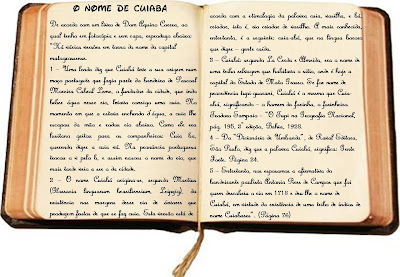 O NOME DE CUIABÁ
De acordo com um livro de Dom Aquino Correa, ao
qual tenho em fotocópia e sem capa, reproduzo abaixo:
"Há várias versões em torno do nome da capital
matogrossense.
1 - Uma lenda diz que Cuiabá teve a sua origem num
moço português que fazia parte da bandeira de Pascoal
Moreira Cabral Leme, a fundadora da cidade, que indo
beber água nesse rio, levara consigo uma cuia. No
momento em que a estava enchendo d'água, a cuia lhe
escapou da mão e rodou rio abaixo. Como ele era
lusitano gritou para os companheiros: Cuia ba,
querendo dizer a cuia vá. Na pronúncia portuguesa
trocou o v pelo b, e assim nasceu o nome do rio, que
mais tarde veio a ser o da cidade.
2 - O nome Cuiabá originou-se, segundo Martius
(Glossaria linguarum brasiliensium, Leipzig), da
existência nas margens desse rio de árvores que
produzem frutos de que se faz cuia. Esta versão está de
acordo com a etimologia da palavra cuia, vasilha, e bá,
criador, isto é, rio criador de vasilha. A mais conhecida,
entretanto, é a seguinte: cuia-abá, que na língua bororo
quer dizer - gente caída.
3 - Cuiabá segundo La Conta e Almeida, era o nome de
uma tribo selvagem que habitava o sítio, onde é hoje a
capital do Estado de Mato Grosso. Se for essa palavra de
procedência tupi-guarani, Cuiabá é a mesma que Cuia
abá, significando - o homem da farinha, o farinheiro
Teodoro Sampaio - "O Tupi na Geografia Nacional,
pág. 195, 3ª edição, Bahia, 1928.
4 - Do "Dicionário de Umbanda", de Raval Editora,
São Paulo, diz que a palavra Cuiabá, significa: Gente
Forte. Página 24.
5 - Entretanto, nos reportamos a afirmativa do
bandeirante paulista Antonio Pires de Campos que foi
quem descobriu o rio em 1718 e deu-lhe o nome de
Cuiabá, em virtude da existência de uma tribo de índios de
nome Cuiabases". (Página 76)